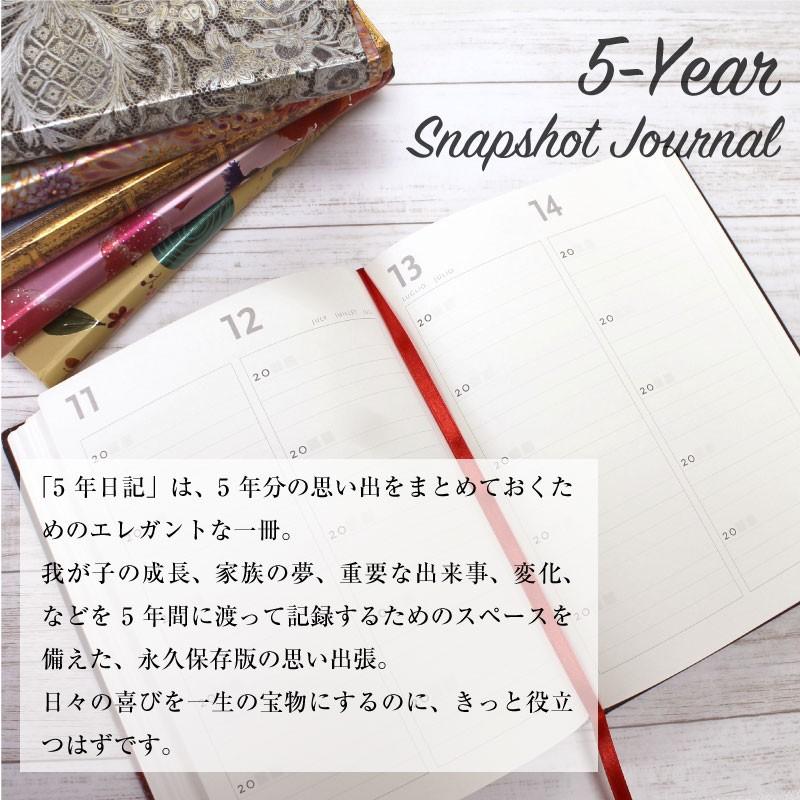 5-Year
Snapshot Journal
14
20
20
13
LUGLIO JULIO
20
20
20
20
20
20
12
JULY JUILLET
20
20
20
11
20
20
20
「5 年日記」は、5 年分の思い出をまとめておくた
めのエレガントな一冊。
我が子の成長、家族の夢、重要な出来事、変化、
などを 5 年間に渡って記録するためのスペースを
備えた、永久保存版の思い出張。
日々の喜びを一生の宝物にするのに、きっと役立
つはずです。